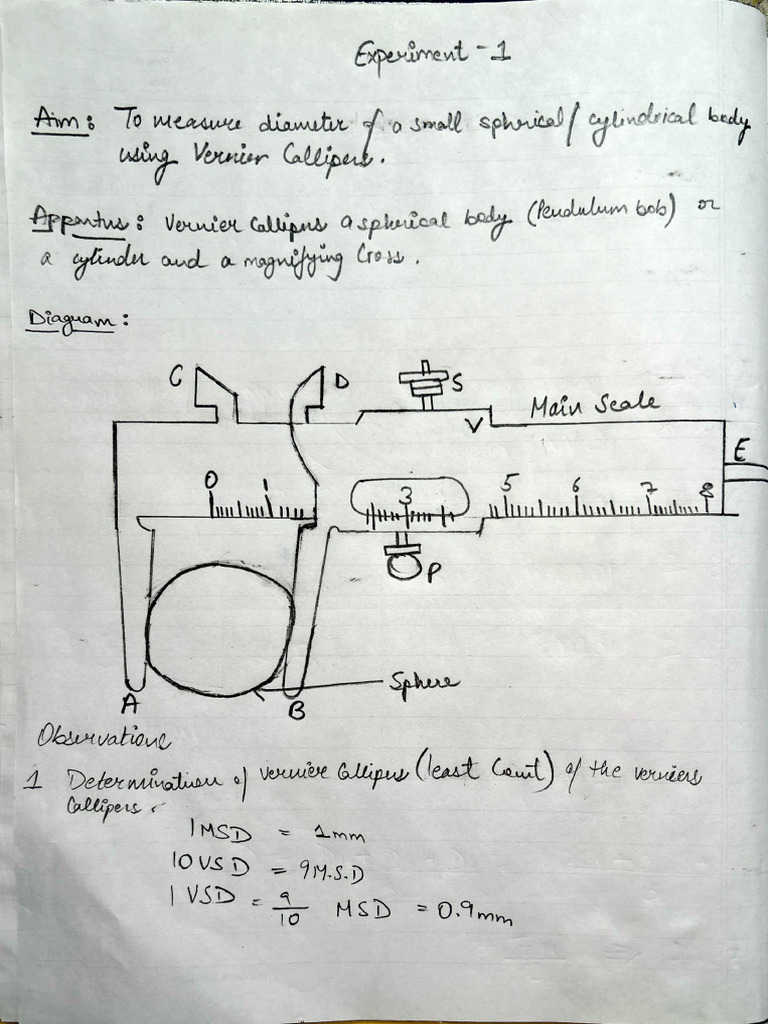 Experiment - 1
Aim: To measure diameter of a small spherical/ cylindrical body
using Vernier Callipers.
Appartus: Vernier Callipers a spherical body (Pendulum bob) or
a cylinder and a magnifying Cross.
Diagram:
C D S
Main Scale
V
E
0 1 3 5 6 7 8
P
Sphere
A B
Observations
1 Determination of Vernier Callipers (least Count) of the verniers
Callipers.
1 MSD = 1mm
10 VSD = 9 M.S.D
1 VSD = 9/10 MSD = 0.9mm